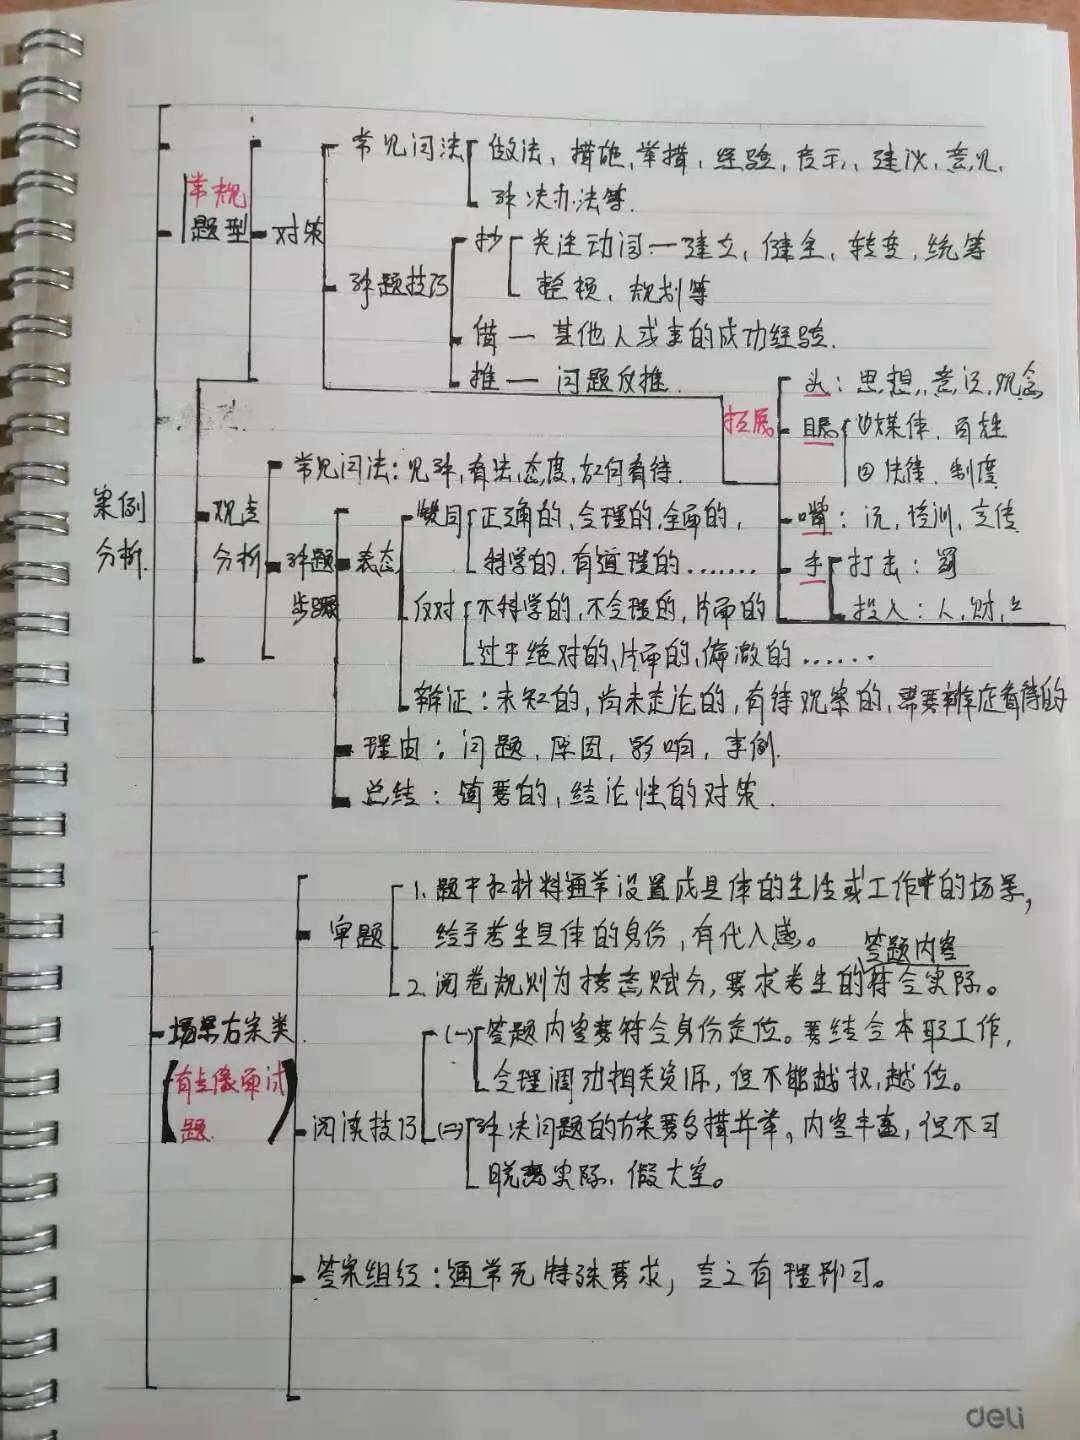 常见问法 做法、措施、举措、经验、启示、建议、意见、
解决办法等.
常规
题型
对策
抄 关注动词一建立,健全,转变,统筹
整顿、规划等
解题技巧
借一 其他人或事的成功经验.
推一 问题反推.
拓展
头:思想,意识,观念
眼 ①媒体、百姓
②法律、制度
嘴:说,培训,宣传
手 打击:罚
投入:人,财,
案例
分析.
观点
分析
常见问法:见解,有法,态度,如何看待.
解题
步骤
表态
赞同 正确的、合理的,全面的,
科学的,有道理的.......
反对 不科学的,不合理的,片面的
过于绝对的、片面的,偏激的......
辩证:未知的,尚未定论的,有待观察的,需要辩证看待的
理由:问题,原因,影响,事例.
总结:简要的,结论性的对策.
审题
1. 题干和材料通常设置成具体的生活或工作中的场景,
给予考生具体的身份,有代入感。
答题内容
2. 阅卷规则为按意赋分,要求考生的符合实际。
场景方案类.
(有点像面试
题.)
阅读技巧
(一) 答题内容要符合身份定位。要结合本职工作,
合理调动相关资源,但不能越权,越位。
(二) 解决问题的方案要多措并举,内容丰富,但不可
脱离实际、假大空。
答案组织:通常无特殊要求,言之有理即可。
deli